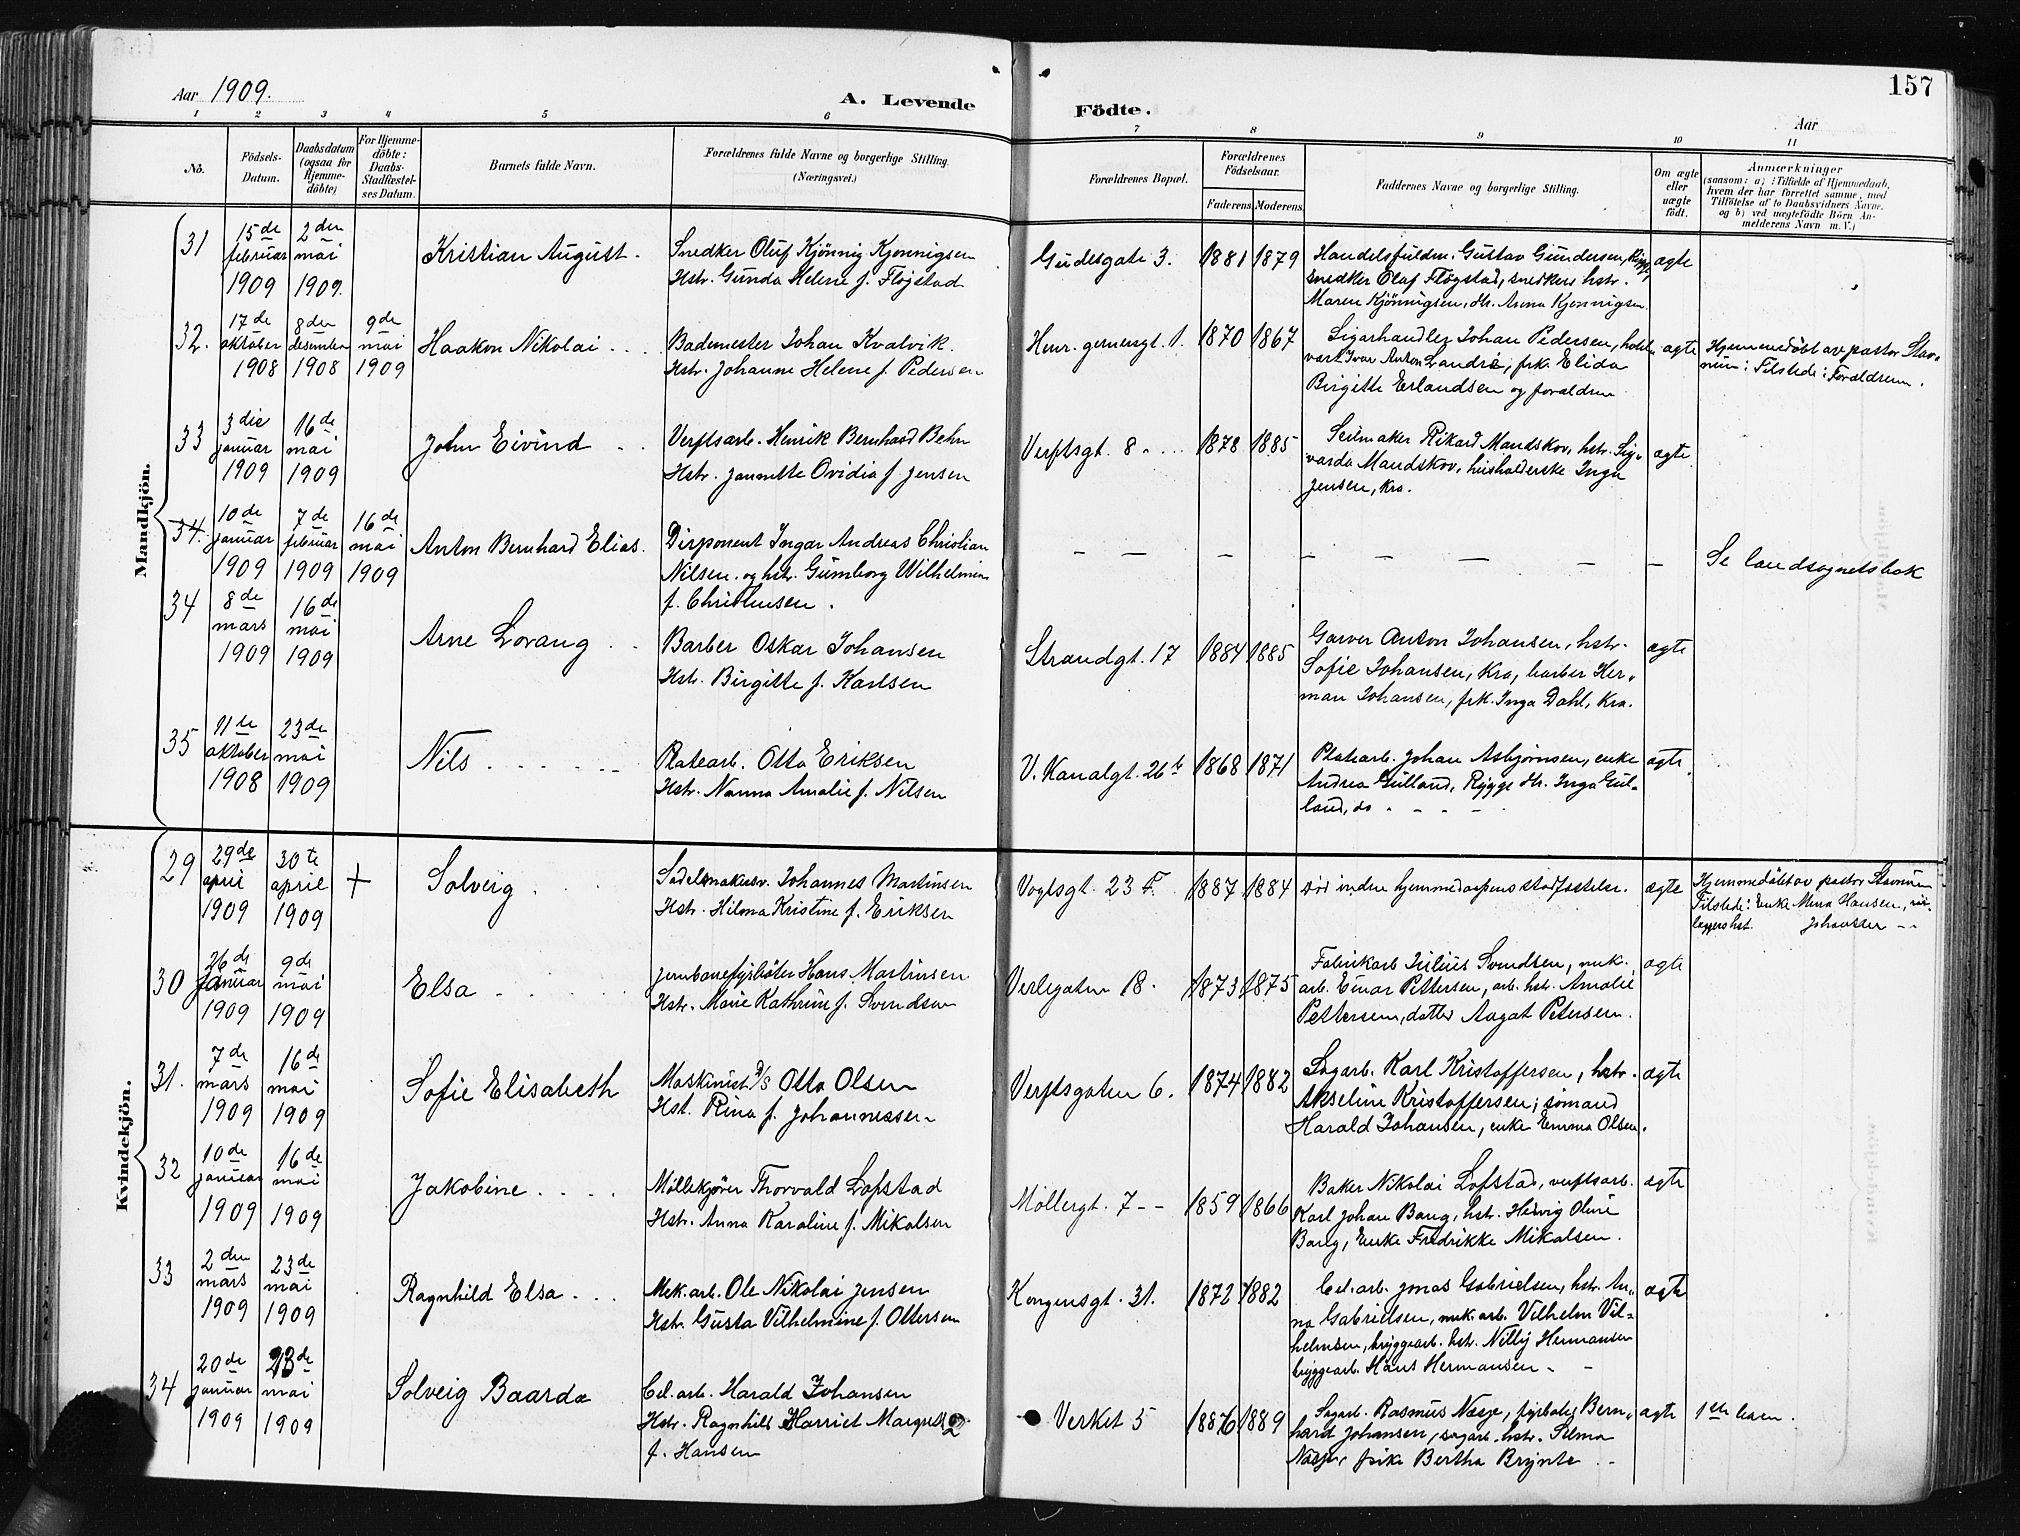 Aar 1909.
A. Levende
Födte.
157
Aar
1 2 3 4 5 6 7 8 9 10 11
No.
Födsels-
Datum.
Daabsdatum
(ogsaa for
Hjemme-
döbte)
For Hjemme-
döbte:
Daabs-
Stadfæstel-
ses Datum.
Barnets fulde Navn.
Forældrenes fulde Navne og borgerlige Stilling.
(Næringsvei.)
Forældrenes Bopæl.
Forældrenes
Födselsaar.
Faderens. Moderens.
Faddernes Navne og borgerlige Stilling.
Om ægte
eller
uægte
födt.
Anmærkninger
(saasom: a) i Tilfælde af Hjemmedaab,
hvem der har forrettet samme, med
Tilföielse af to Daabsvidners Navne.
og b) ved uægtefödte Börn An-
melderens Navn m. V.)
Mandkjön.
31
15de februar 1909
2den mai 1909.
Kristian August.
Snedker Oluf Kjönnig Kjonnigsen
Hstr. Gunda Helene f. Flöjstad
Gudesgate 3.
1881 1879
Handelsfuldm. Gustav Gundersen, Rygge
snedker Olaf Flögstad, snedkers hstr.
Maren Kjönnigsen, dtr. Anna Kjonnigsen
ægte
32.
17de oktober 1908
8den desember 1908
9de mai 1909
Haakon Nikolai
Bademester Johan Kvalvik.
Hstr. Johanne Helene f. Pedersen
Henr. gernersgt. 1.
1870 1867
Sigarhandler Johan Pedersen, hotel
vært Ivar Anton Landrö, frk. Elida
Birgitte Erlandsen og forældren
ægte
Hjemmedöbt av pastor Stav-
num: Tilstede: Forældrene.
33
3die januar 1909
16de mai 1909
John Eivind
Verftsarb. Henrik Bernhard Behn
Hstr. Jannette Ovidia f. Jensen
Verftsgt. 8
1878 1885
Seilmaker Rikard Mandskov, hstr. Sig-
varda Mandskov, husholderske Inga
Jensen, Kra.
ægte
34.
10de januar 1909
7de februar 1909
16de mai 1909
Anton Bernhard Elias.
Disponent Ingar Andreas Christian
Nilsen. og hstr. Gumborg Wilhelmine
f. Christensen.
Se landsognetsbok
34
8de mars 1909
16de mai 1909
Arne Lorang
Barber Oskar Johansen
Hstr. Birgitte f. Karlsen
Strandgt. 17
1884 1885
Garver Anton Johansen, hstr.
Sofie Johansen, Kra, barber Her-
man Johansen, frk. Inga Dahl, Kra.
ægte
35
11te oktober 1908
23de mai 1909
Nils
Platearb. Otto Eriksen
Hstr. Nanna Amalie f. Nilsen
V. Kanalgt. 26 b
1868 1871
Platearb. Johan Asbjörnsen, enke
Andrea Gulland, Rygge dtr. Inga Gul-
land, do
ægte.
Kvindekjön.
29
29de april 1909
30te april 1909
+
Solveig
Sadelmakersv. Johannes Martinsen
Hstr. Hilma Kristine f. Eriksen
Vogtsgt. 23 F.
1887 1884
död inden hjemmedaapens stadfæstelse.
ægte
Hjemmedöbt av pastor Stavnum
Tilstede: Enke Mina Hansen,
Johansen
30
26de januar 1909
9de mai 1909
Elsa
Jernbanefyrböter Hans Martinsen
Hstr. Marie Kathrine f. Svendsen
Verlegaten 18.
1873 1875
Fabrikarb Julius Svendsen, mek.
arb. Einar Pettersen, arb. hstr. Amalie
Pettersen, datter Aagat Petersen.
ægte
31.
7de mars 1909
16de mai 1909
Sofie Elisabeth
Maskinist D/S Otto Olsen
Hst. Rina f. Johannessen
Verftsgaten 6.
1874 1882
Sagarb. Karl Kristoffersen, hstr.
Akseline Kristoffersen; sömand
Harald Johansen, enke Emma Olsen.
ægte
32
10de januar 1909
16de mai 1909
Jakobine
Möllekjörer Thorvald Lofstad
Hstr. Anna Karoline f. Mikalsen
Möllergt. 7
1859 1866
Baker Nikolai Lofstad, verftsarb.
Karl Johan Bang, hstr. Hedvig Oline
Bang, Enke Fredrikke Mikalsen.
ægte
33
2den mars 1909
23de mai 1909
Ragnhild Elsa
Mek. arb. Ole Nikolai Jensen
Hstr. Gusta Vilhelmine f. Ottersen
Kongensgt. 31.
1872 1882
Cel. arb. Jonas Gabrielsen, hstr. An-
na Gabrielsen, mek. arb. Vilhelm Vil-
helmsen, bryggearb. hstr. Nelly Hermansen
bryggearb. Hans Hermansen
ægte
34
20de januar 1909
23de mai 1909
Solveig Baarda
Cel. arb. Harald Johansen
Hstr. Ragnhild Harriet Margrethe
f. Hansen
Verket 5
1886 1889
Sagarb. Rasmus Næsje, fyrböter Bern-
hard Johansen, sagarb. hstr. Selma
Næsje, frk. Bertha Brynte
ægte
1ste barn.